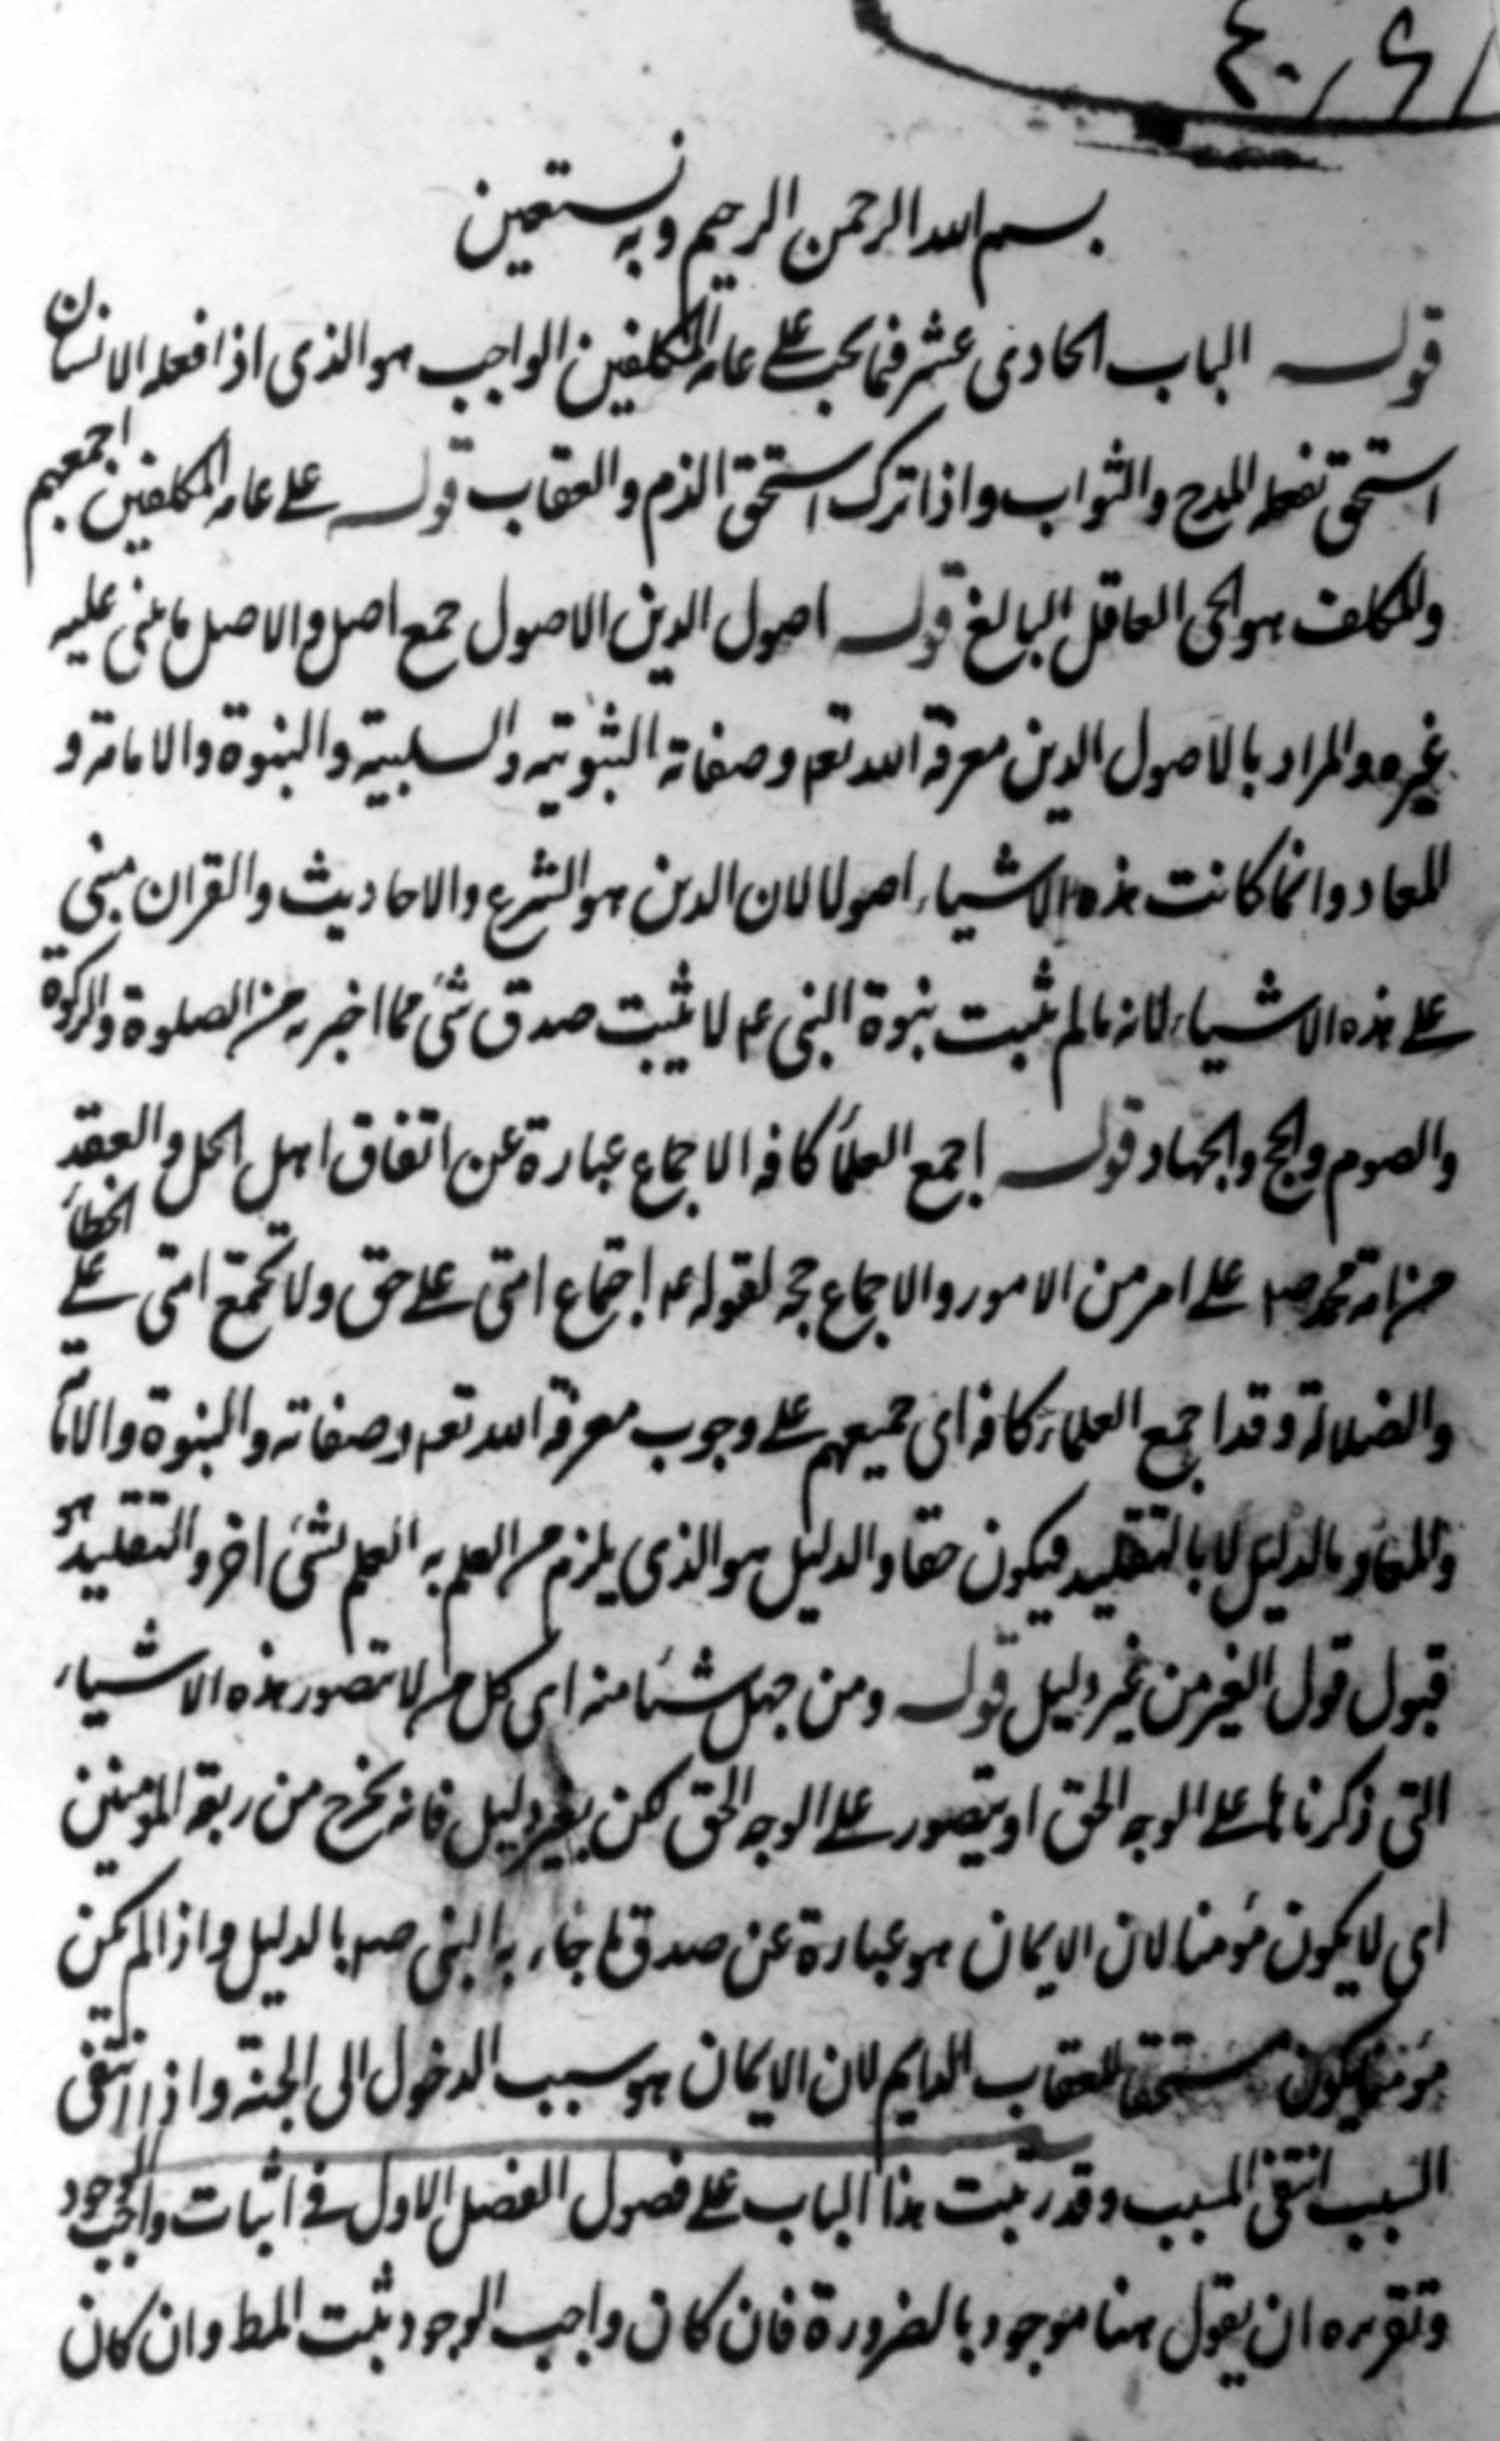 ٤٠٫٦
بسم الله الرحمن الرحيم وبه نستعين
قوله الباب الحادى عشر فيما يجب على عامة المكلفين الواجب هو الذى اذا فعله الانسان
استحق بفعله المدح والثواب واذا ترك استحق الذم والعقاب قوله على عامه المكلفين اجمعهم
والمكلف هو الحى العاقل البالغ قوله اصول الدين الاصول جمع اصل والاصل ما يبنى عليه
غيره والمراد بالاصول الدين معرفة الله تعم وصفاته الثبوتيه والسلبية والنبوة والامامة و
المعاد وانما كانت هذه الاشياء اصولا لان الدين هو الشرع والاحاديث والقران مبنى
على هذه الاشياء لانه مالم يثبت نبوة النبى ع لا يثبت صدق شئ مما اخبر به من الصلوة والزكوة
والصوم والحج والجهاد قوله اجمع العلماء كافه الاجماع عبارة عن اتفاق اهل الحل والعقد
من امة محمد ص على امر من الامور والاجماع حجه لقوله ع اجتماع امتى على حق ولا تجمع امتى على الخطاء
والضلالة وقد اجمع العلماء كافه اى جميعهم على وجوب معرفة الله تعم وصفاته والنبوة والامامة
والمعاد بالدليل لا بالتقليد فيكون حقا والدليل هو الذى يلزم من العلم به العلم لشئ اخر والتقليد هو
قبول قول الغير من غير دليل قوله ومن جهل شيئا منه اى كل من لا يتصور هذه الاشياء
التى ذكرناها على الوجه الحق او يتصور على الوجه الحق لكن بغير دليل فانه يخرج من ربقة المؤمنين
اى لا يكون مؤمنا لان الايمان هو عبارة عن صدق ما جاء به النبى ص بالدليل واذا لم يكن
مؤمنا يكون مستحقا للعقاب الدايم لان الايمان هو سبب الدخول الى الجنة واذا انتفى
السبب انتفى المسبب وقد رتبت هذا الباب على فصول الفصل الاول فى اثبات واجب الوجود
وتقريره ان يقول هنا موجود بالضرورة فان كان واجب الوجود ثبت المط وان كان